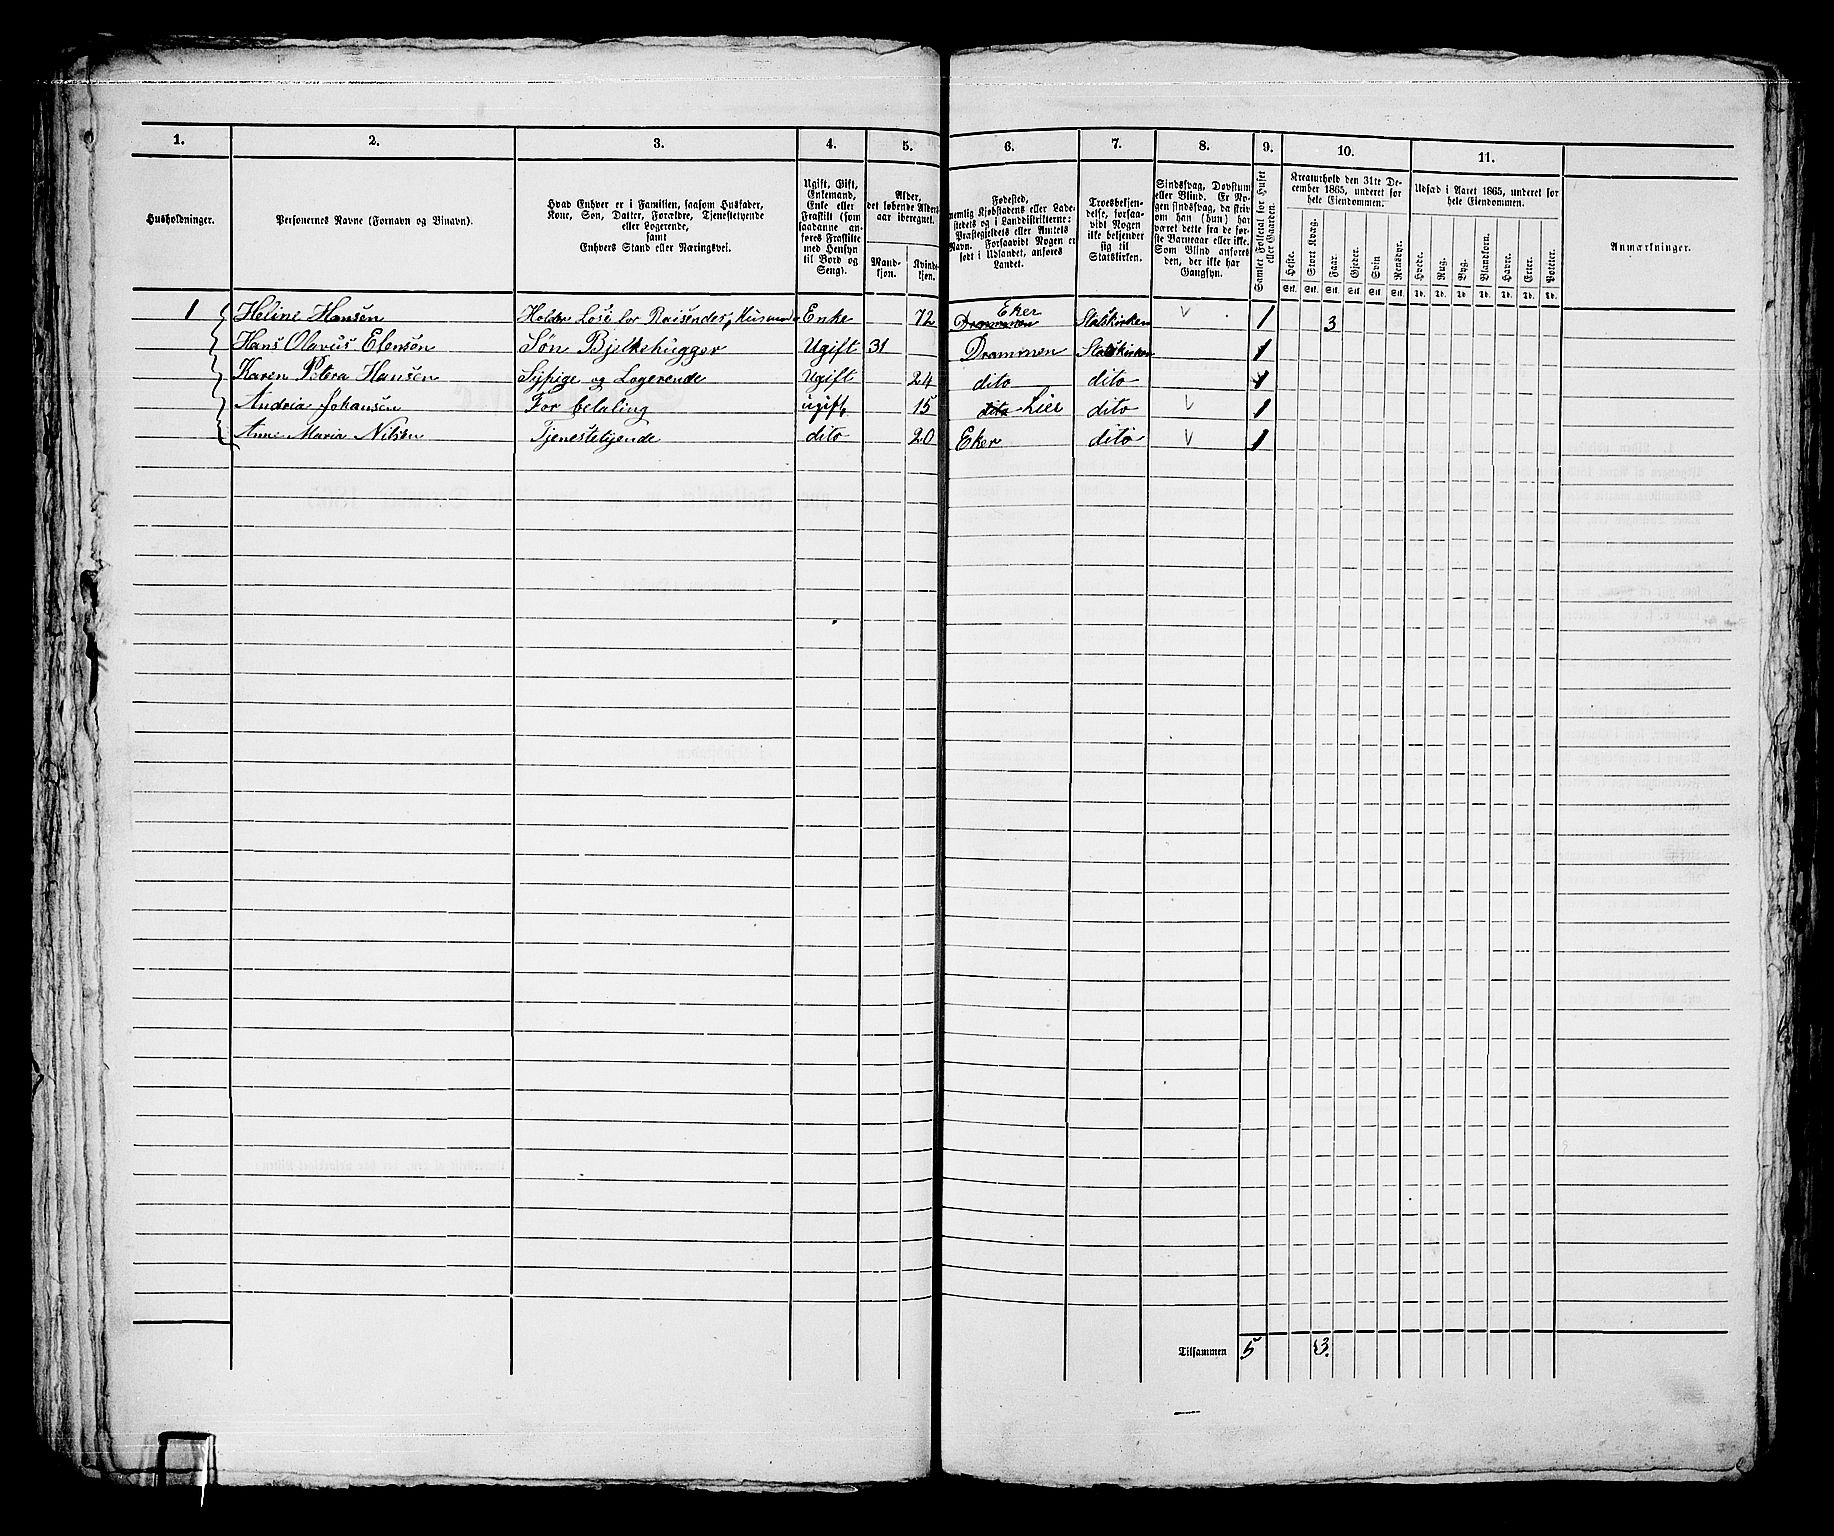 1. 2. 3. 4. 5. 6. 7. 8. 9. 10. 11.
Husholdninger.
Personernes Navne (Fornavn og Binavn).
Hvad Enhver er i Familien, saasom Husfader,
Kone, Søn, Datter, Forældre, Tjenestetyende
eller Logerende,
samt
Enhvers Stand eller Næringsvei.
Ugift, Gift,
Enkemand,
Enke eller
Fraskilt (som
saadanne an-
føres Fraskilte
med Hensyn
til Bord og
Seng).
Alder,
det løbende Alders-
aar iberegnet.
Mand-
kjøn.
Kvinde-
kjøn.
Fødested,
nemlig Kjøbstadens eller Lade-
stedets og i Landdistrikterne:
Præstegjeldets eller Amtets
Navn. Forsaavidt Nogen er
født i Udlandet, anføres
Landet.
Troesbekjen-
delse, forsaa-
vidt Nogen
ikke bekjender
sig til
Statskirken.
Sindssvag, Døvstum
eller Blind. Er No-
gen sindssvag, da skriv
om han (hun) har
været dette fra de før-
ste Barneaar eller ikke.
Som Blind anføres
den, der ikke har
Gangsyn.
Samlet Folketal for Huset
eller Gaarden.
Kreaturhold den 31te De-
cember 1865, underet for
hele Eiendommen.
Heste. Stort Kvæg. Faar. Gjeder. Svin Rensdyr.
Stk. Stk. Stk. Stk. Stk. Stk.
Udsæd i Aaret 1865, underet for
hele Eiendommen.
Hvede. Rug. Byg. Blandkorn. Havre. Erter. Poteter.
Td. Td. Td. Td. Td. Td. Td.
Anmærkninger.
1 Heline Hansen Holder Lose for Reisendes, Enke 72 Drammen Eker Statskirken 1 3
Hans Olavus Elensøn Søn Bjelkehugger Ugift 31 Drammen Statskirken 1
Karen Petera Hansen Sypige og Logerende Ugift 24 dito dito 1
Andria Johansen For betaling ugift 15 dito Lier dito 1
Anne Maria Nilsen Tjenestetyende dito 20 Eker dito 1
Tilsammen 5 3.